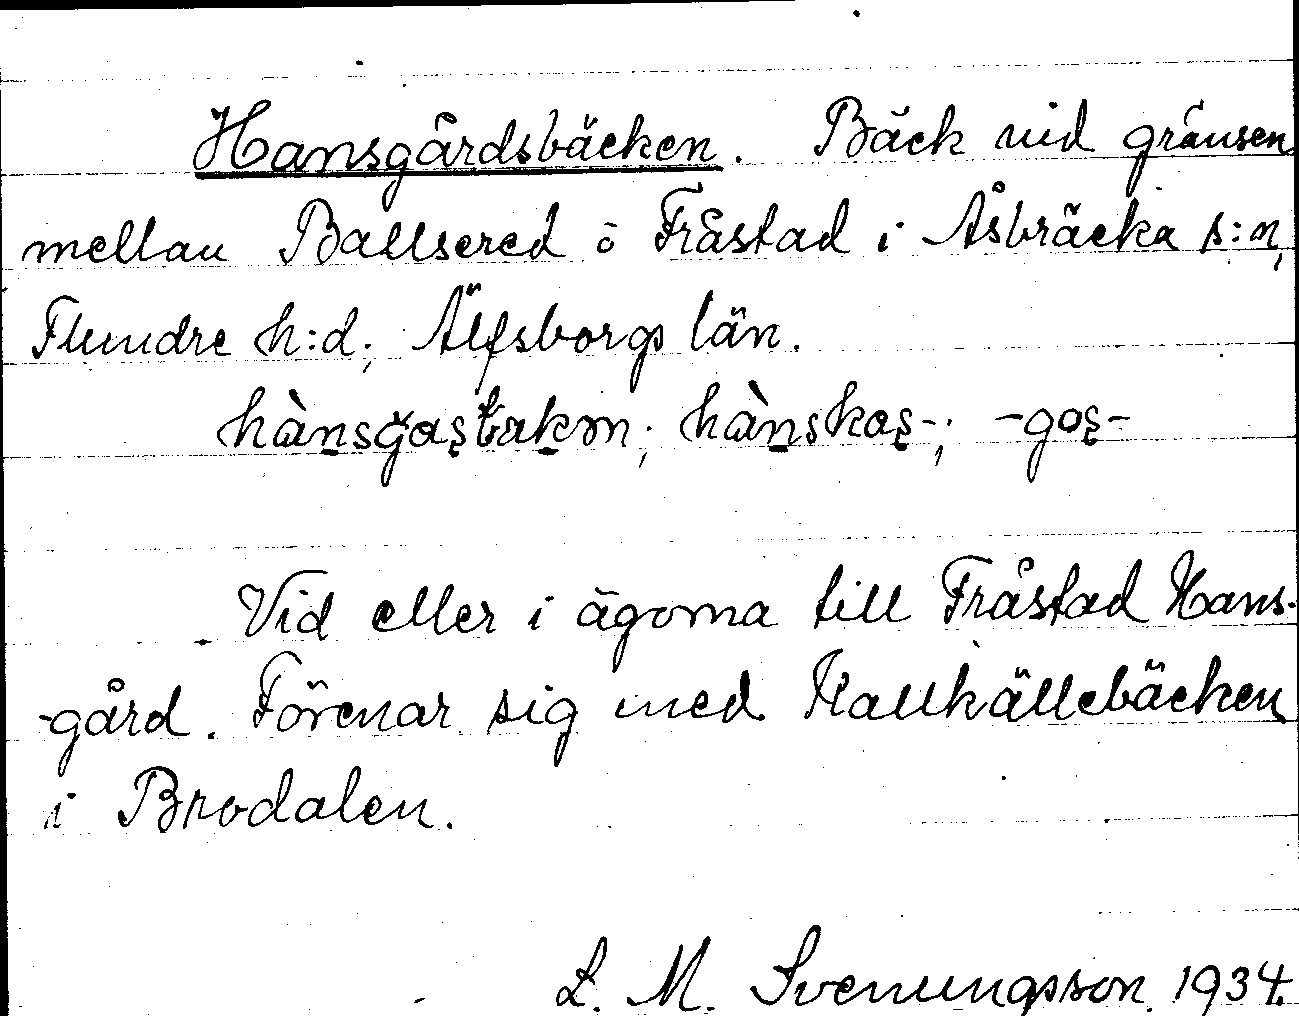 Hansgårdsbäcken. Bäck vid gränsen
mellan Ballsered o Fråstad i Åsbräcka s:n,
Flundre h:d, Älfsborgs län.
hànsgasbakm; hànskas-; -gas-
Vid eller i ägorna till Fråstad Hans-
-gård. Förenar sig med Kallkällebäcken
i Brodalen.
L. M. Svenungsson 1934.